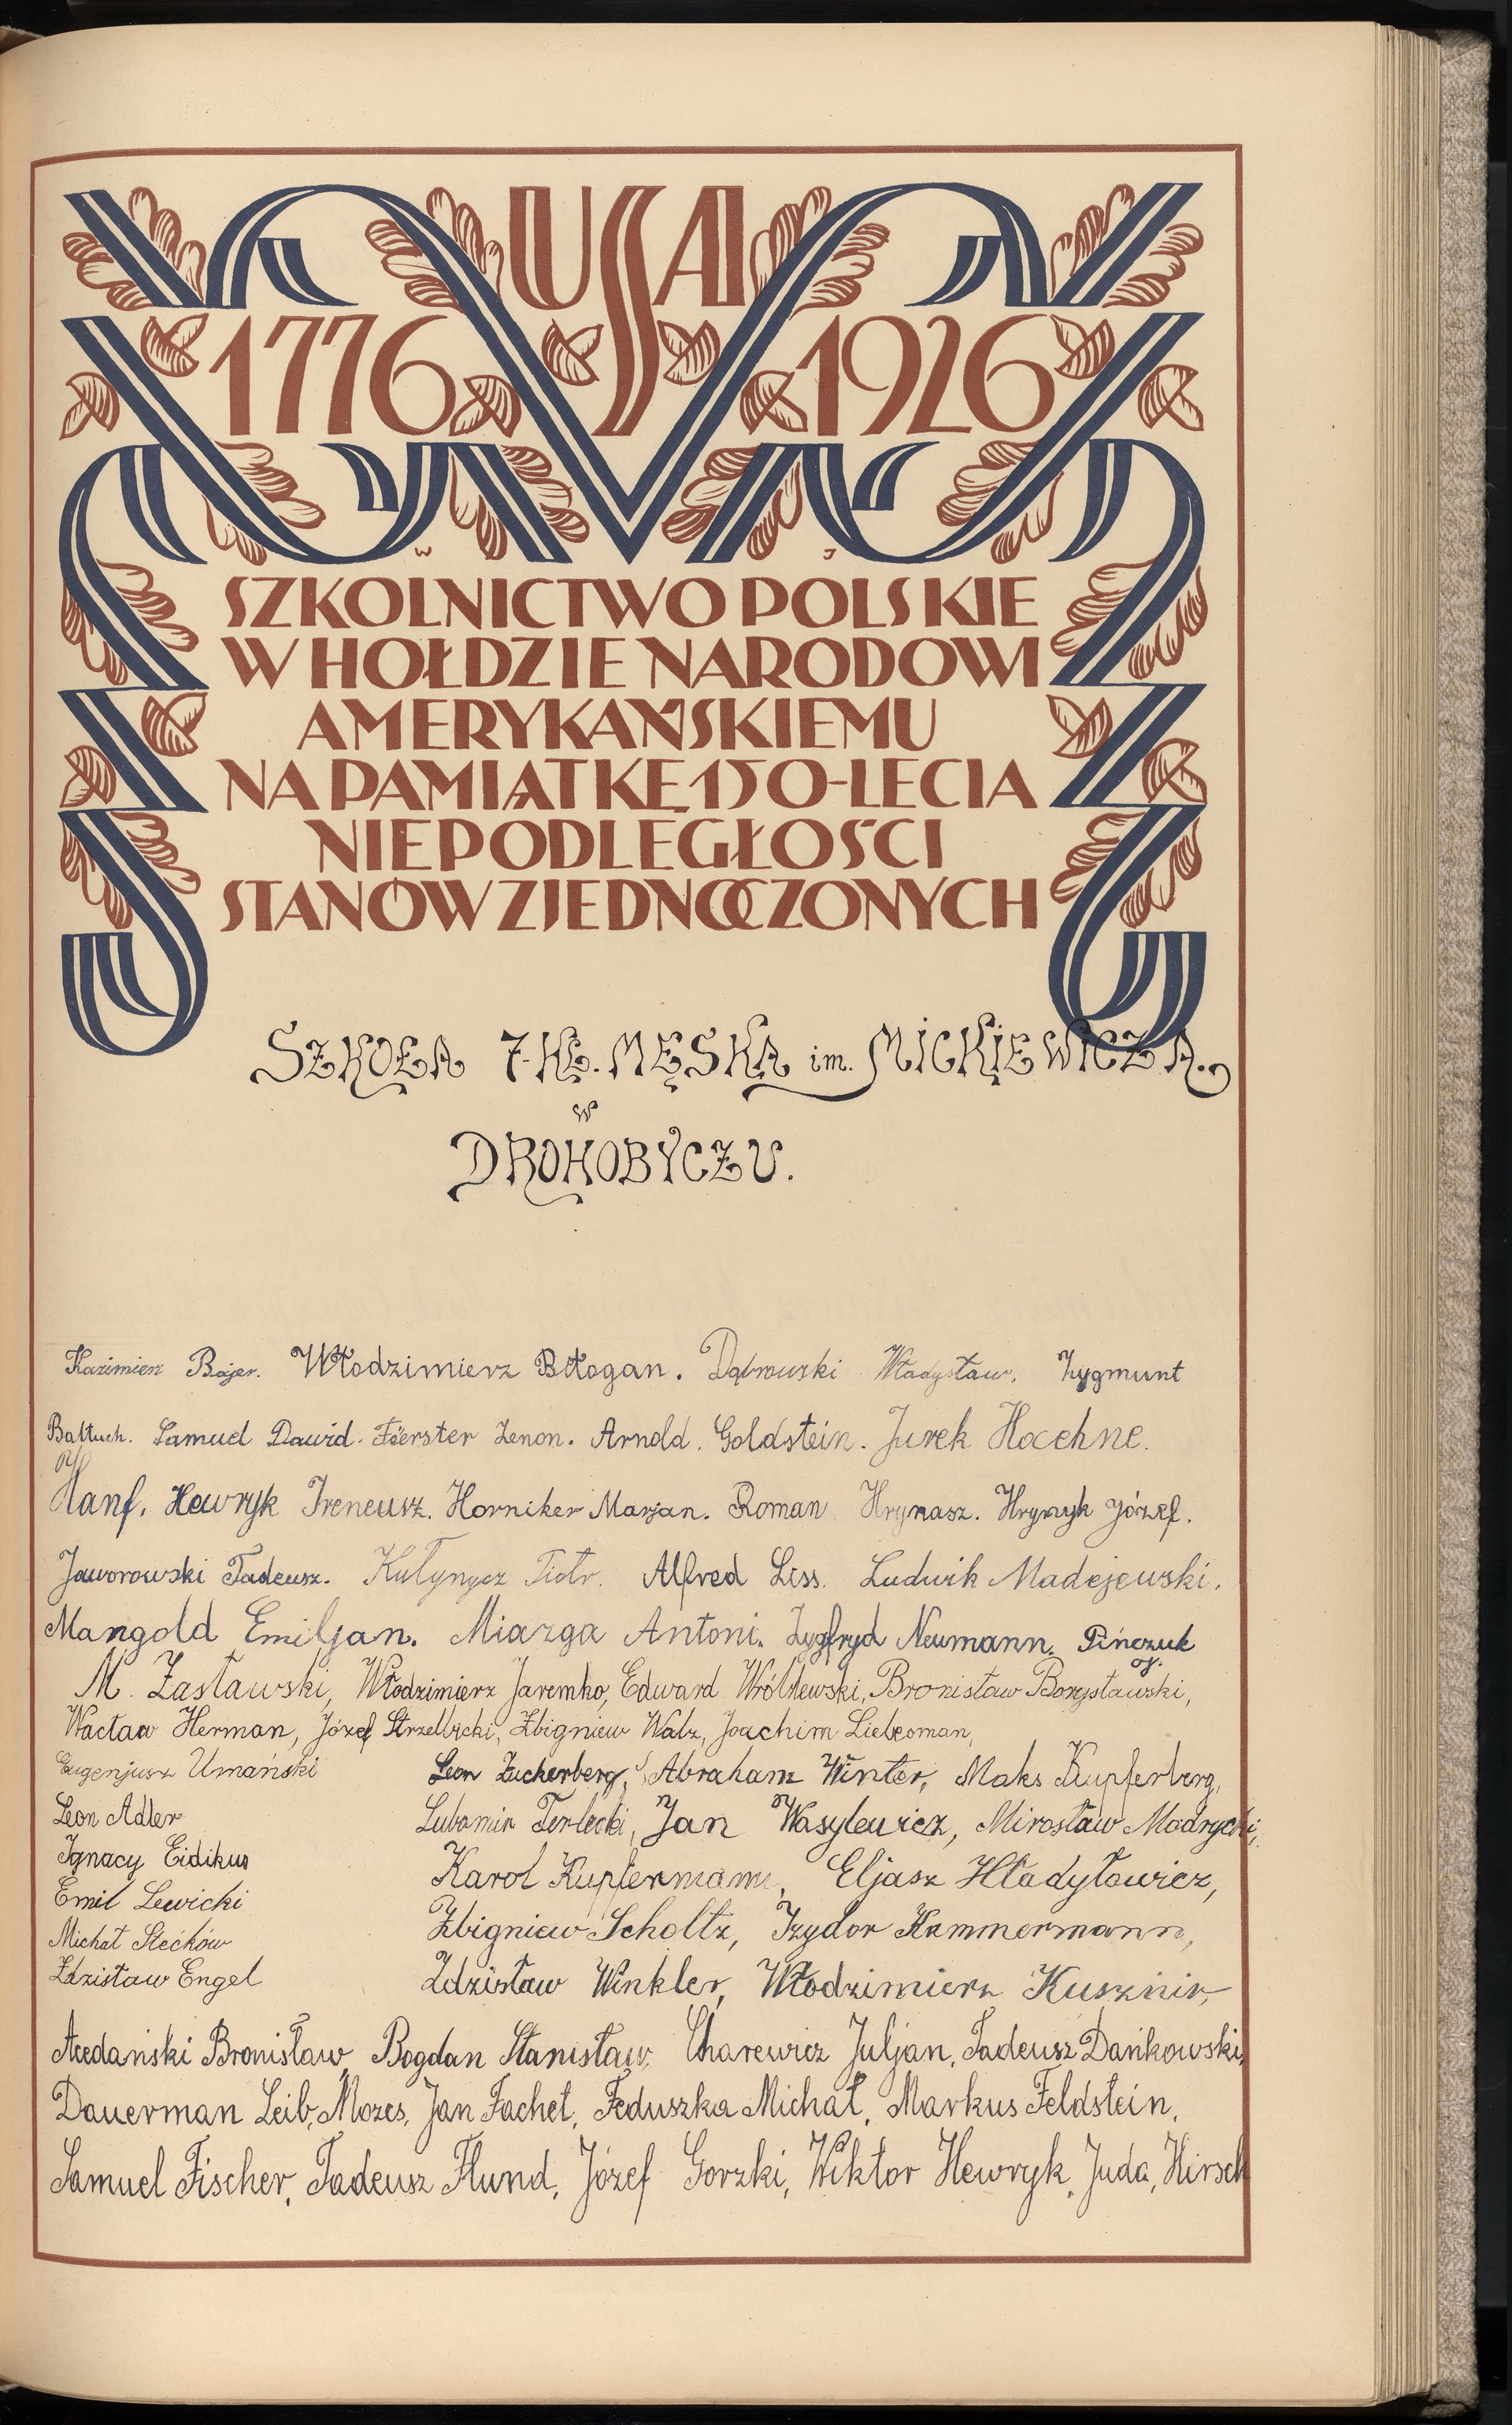 USA
1776 1926
W J
SZKOLNICTWO POLSKIE
W HOŁDZIE NARODOWI
AMERYKAŃSKIEMU
NA PAMIĄTKĘ 150-LECIA
NIEPODLEGŁOŚCI
STANÓW ZJEDNOCZONYCH
SZKOŁA 7-KL. MĘSKA im. MICKIEWICZA.
w
DROHOBYCZU.
Kazimierz Bajer. Włodzimierz Błogan. Dąbrowski Władysław. Zygmunt
Baltuch. Samuel Dawid. Föerster Zenon. Arnold. Goldstein. Jurek Hoehne.
Hanf. Hewryk Ireneusz. Horniker Marjan. Roman Hrynasz. Hrynyk Józef.
Jaworowski Tadeusz. Kutynycz Piotr. Alfred Liss. Ludwik Madejewski.
Mangold Emiljan. Miazga Antoni. Zygfryd Neumann. Pińczuk
M. Zasławski, Włodzimierz Jaremko, Edward Wróblewski, Bronisław Borysławski,
Wacław Herman, Józef Strzelbicki, Zbigniew Walz, Joachim
Eugenjusz Umański Leon Zuckerberg, Abraham Winter, Maks Kupferberg,
Leon Adler Lubomir Terlecki, Jan Wasylewicz, Mirosław Modrycki,
Ignacy Eidikus Karol Kupfermann, Eljasz Hładyłowicz,
Emil Lewicki Zbigniew Scholtz, Izydor Kammermann,
Michał Stećków Zdzisław Winkler, Włodzimierz Kusznir,
Zdzisław Engel
Acedański Bronisław, Bogdan Stanisław, Charewicz Juljan, Tadeusz Dańkowski,
Dauerman Leib, Mozes, Jan Fachet, Feduszka Michał, Markus Feldstein,
Samuel Fischer, Tadeusz Flund, Józef Gorzki, Wiktor Hewryk, Juda, Hirsch